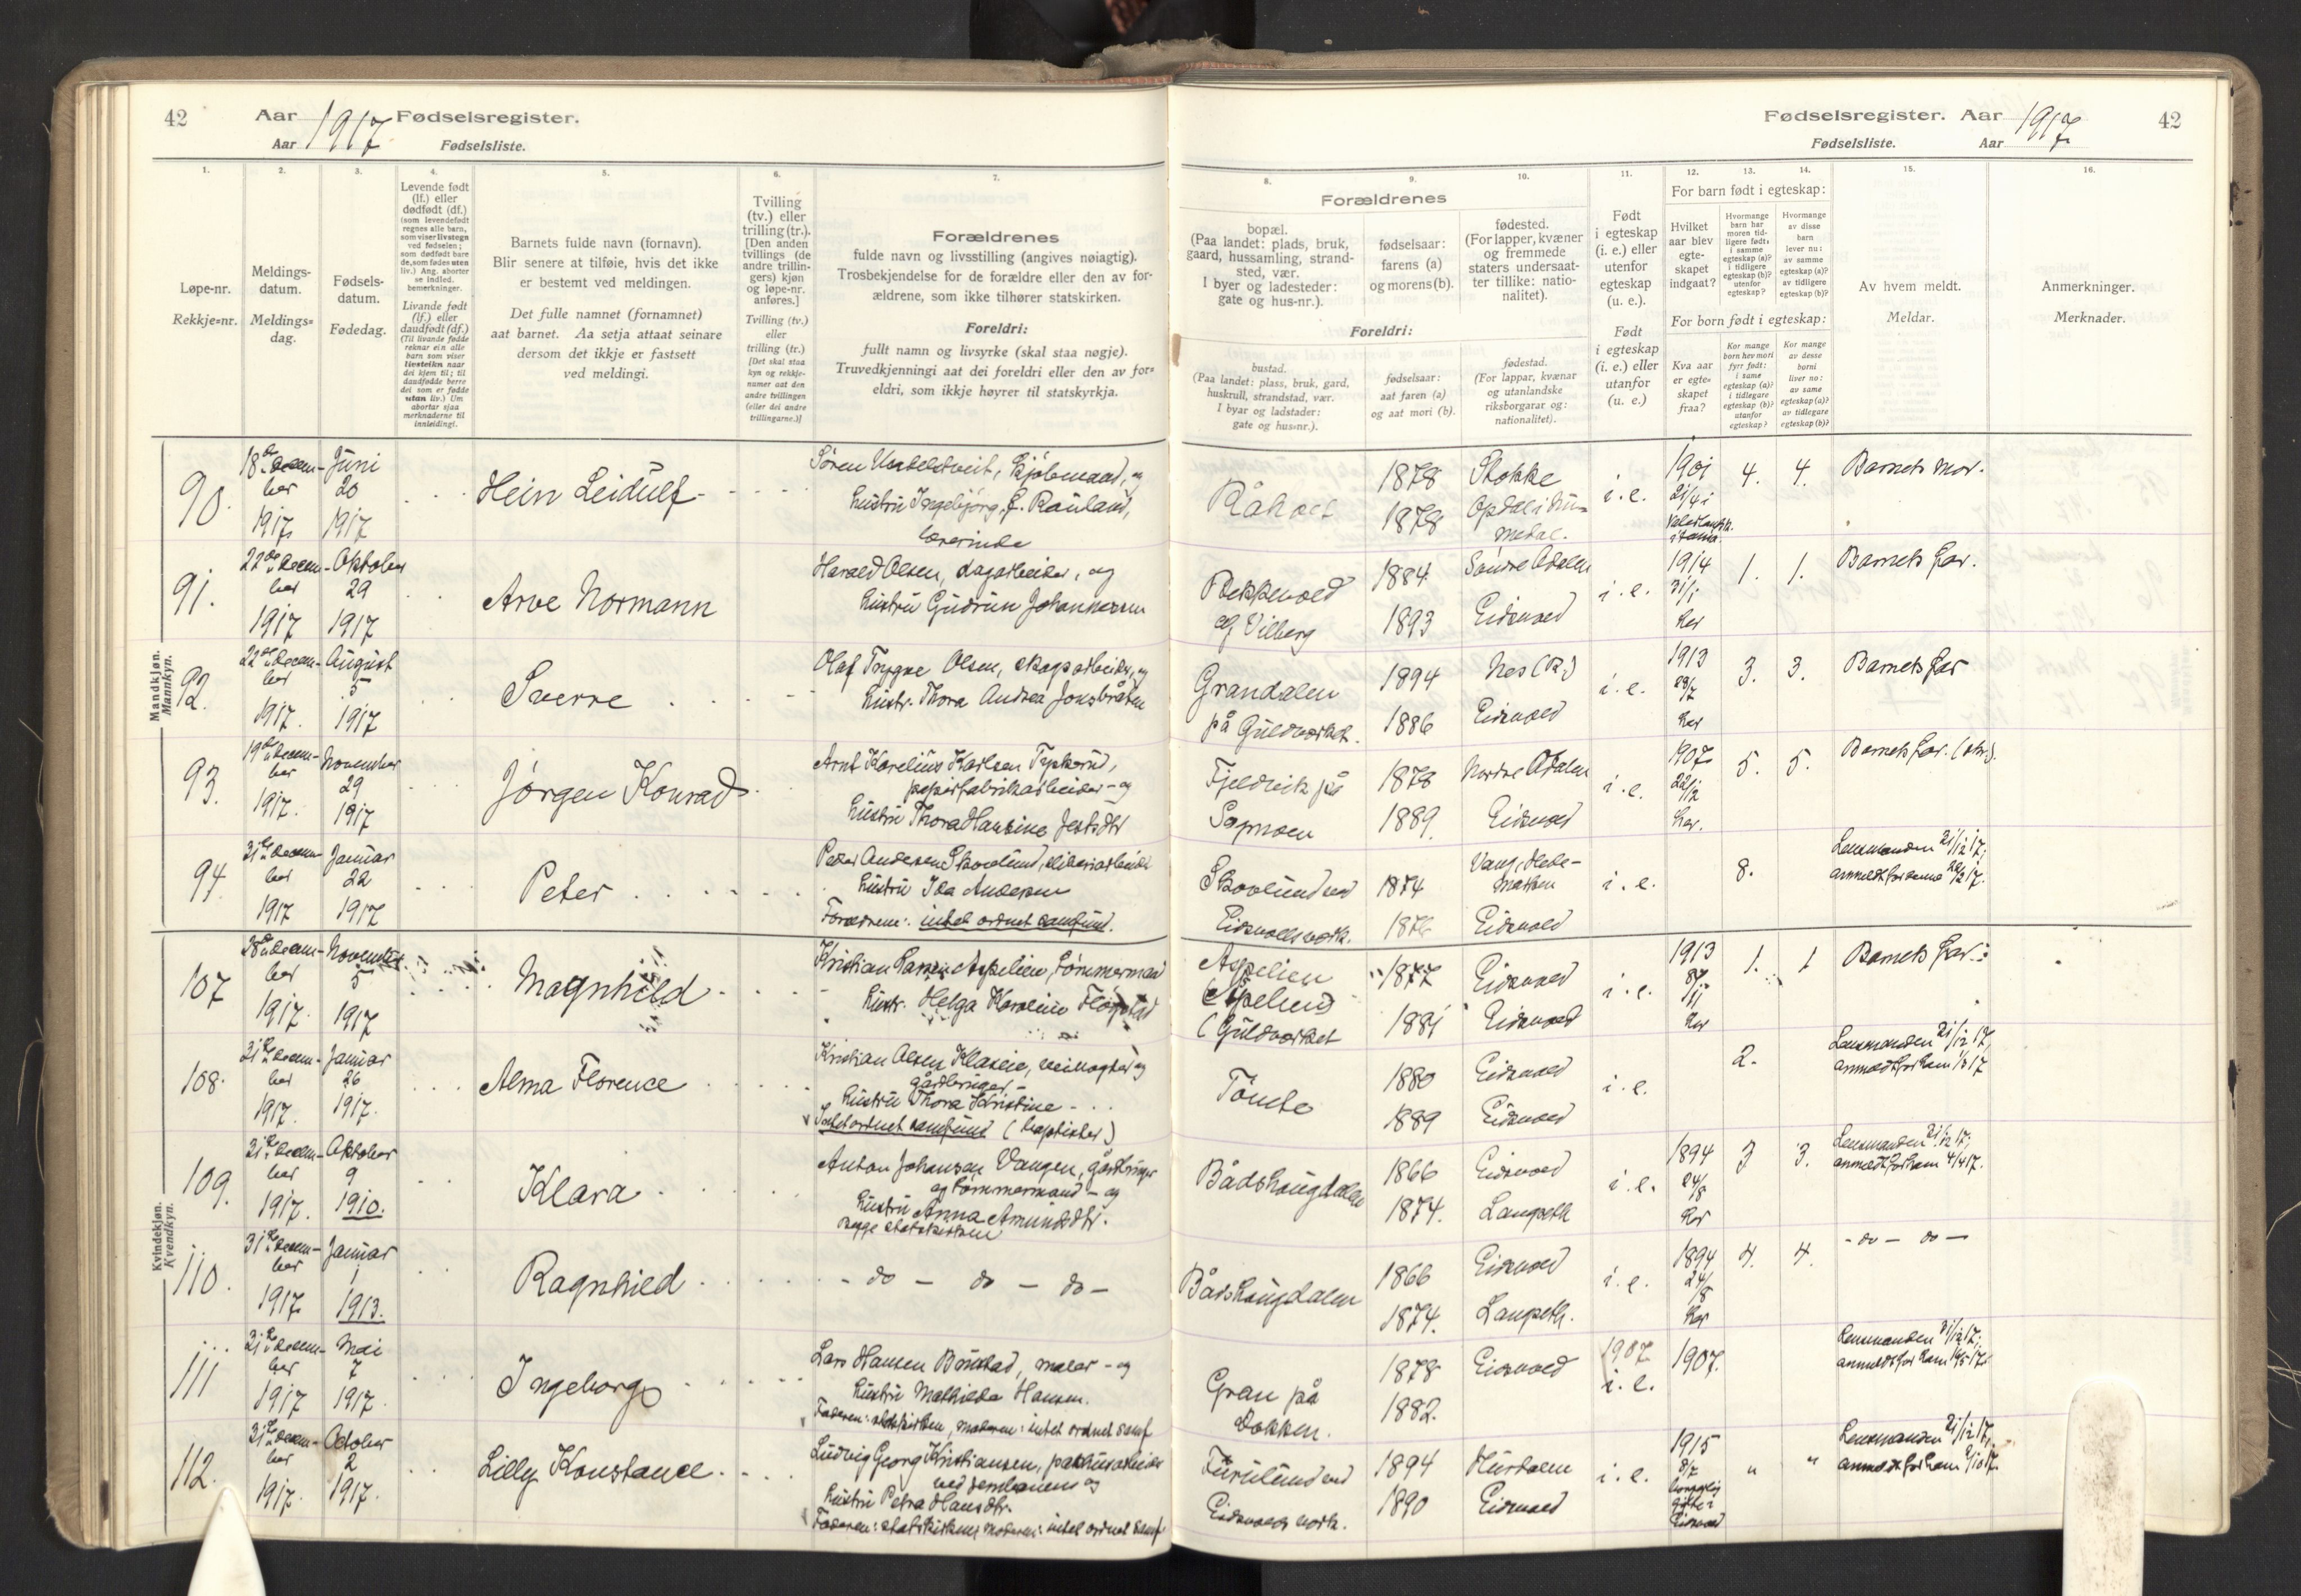 42
Aar 1917 Fødselsregister.
Aar Fødselsliste.
1.
Løpe-nr.
Rekkje=nr.
2.
Meldings-
datum.
Meldings=
dag.
3.
Fødsels-
datum.
Fødedag.
4.
Levende født
(lf.) eller
dødfødt (df.)
(som levendefødt
regnes alle barn,
som viser livstegn
ved fødselen;
som dødfødt bare
de, som fødes uten
liv.) Ang. aborter
se indled.
bemerkninger.
Livande født
(lf.) eller
daudfødt (df.)
(Til livande fødde
reknar ein alle
barn som viser
livsteikn naar
dei kjem til; til
daudfødde berre
dei som er fødde
utan liv.) Um
abortar sjaa
merknaderne til
innleidingi.
5.
Barnets fulde navn (fornavn).
Blir senere at tilføie, hvis det ikke
er bestemt ved meldingen.
Det fulle namnet (fornamnet)
aat barnet. Aa setja attaat seinare
dersom det ikkje er fastsett
ved meldingi.
6.
Tvilling
(tv.) eller
trilling (tr.).
[Den anden
tvillings (de
andre trillin-
gers) kjøn
og løpe-nr.
anføres.]
Tvilling (tv.)
eller
trilling (tr.)
[Det skal staa
kyn og rekkje-
numer aat den
andre tvillingen
(eller dei andre
trillingarne.)]
7.
Forældrenes
fulde navn og livsstilling (angives nøiagtig).
Trosbekjendelse for de forældre eller den av for-
ældrene, som ikke tilhører statskirken.
Foreldri:
fullt namn og livsyrke (skal staa nøgje).
Truvedkjenningi aat dei foreldri eller den av for=
eldri, som ikkje høyrer til statskyrkja.
Mandkjøn.
Mannkyn.
90.
18de Decem-
ber
1917.
Juni
20
1917
Hein Leidulf
hustru Ingebjørg f. Rauland,
lærerinde
91.
22de Decem-
ber
1917
Oktober
29
1917
Arve Normann
Harald Olsen, dagarbeider, og
hustru Gudrun Johannessen
92.
22de Decem-
ber
1917.
August
5
1917
Sverre
Olaf Trygve Olsen, skogsarbeider, og
hustr. Thora Andrea Jonsbråten
93.
19de Decem-
ber
1917.
November
29
1917
Jörgen Konrad
Arnt Karelius Karlsen
papirfabrikarbeider - og
hustru Thora Hansine
94.
31te Decem-
ber
1917
Januar
22
1917
Peter
Peder Andersen Skovlund, sliberiarbeider
hustru Ida Andersen
Forældrene: intet ordnet samfund.
Kvindekjøn.
Kvendkyn.
107
28de Decem-
ber
1917.
November
5
1917
Magnhild
Kristian Larsen Aspelien, tømmermand
hustr. Helga Karoline
108.
31te Decem-
ber
1917.
Januar
26
1917.
Alma Florence
Kristian Olsen Klaseie, veivogter og
gårdbruger -
hustru Thora Kristine
Intet ordnet samfund (baptister)
109.
31te Decem-
ber
1917.
Oktober
9
1910.
Klara
Anton Johansen Vangen, gårdbruger
og tømmermand - og
hustru Anna Amundsdtr.
begge statskirken
110.
31te Decem-
ber
1917
Januar
1
1913.
Ragnhild
- do - do - do -
111
31te Decem-
ber
1917
Mai
7
1917.
Ingeborg
Lars Hansen Bönstad, maler - og
hustru Mathilde Hansen.
Faderen: statskirken, moderen: intet ordnet samf
112.
31te Decem-
ber
1917.
October
2
1917.
Lilly Konstance
Ludvig Georg Kristiansen, pakhusarbeider
ved jernbanen og
hustru Petra Hansdtr.
Faderen: statskirken, moderen: intet ordnet samf
Fødselsregister. Aar 1917
Fødselsliste. Aar
42
8.
Forældrenes
bopæl.
(Paa landet: plads, bruk,
gaard, hussamling, strand-
sted, vær.
I byer og ladesteder:
gate og hus-nr.).
9.
fødselsaar:
farens (a)
og morens (b).
10.
fødested.
(For lapper, kvæner
og fremmede
staters undersaat-
ter tillike: natio-
nalitet).
Foreldri:
bustad.
(Paa landet: plass, bruk, gard,
huskrull, strandstad, vær.
I byar og ladstader:
gate og hus=nr.).
fødselsaar:
aat faren (a)
og aat mori (b).
fødestad.
(For lappar, kvænar
og utanlandske
riksborgarar og:
nationalitet).
11.
Født
i egteskap
(i. e.) eller
utenfor
egteskap
(u. e.).
Født
i egteskap
(i. e.) eller
utanfor
egteskap
(u. e.)
12. 13. 14.
For barn født i egteskap:
Hvilket
aar blev
egte-
skapet
indgaat?
Hvormange
barn har
moren tid-
ligere født:
i samme
egteskap (a)?
i tidligere
egteskap (b)?
utenfor
egteskap?
Hvormange
av disse
barn
lever nu:
av samme
egteskap (a)?
av tidligere
egteskap (b)?
For born født i egteskap:
Kva aar
er egte=
skapet
fraa?
Kor mange
born hev mori
fyrr født:
i same
egteskap (a)?
i tidlegare
egteskap (b)?
utanfor
egteskap?
Kor mange
av desse
borni
liver no:
av same
egteskap (a)?
av tidlegare
egteskap (b)?
15.
Av hvem meldt.
Meldar.
16.
Anmerkninger.
Merknader.
Råholt
1878
1878
Stokke
Opdal i Nu-
medal.
i. e.
1901
21/4 i
4. 4.
Barnets mor.
Bekkevold
og Vilberg
1884
1893
Søndre Odalen
Eidsvold
i. e.
1914
31/1
her
1. 1.
Barnets far.
Grandalen
på Guldverket.
1894
1886
Nes (R.)
Eidsvold
i. e.
1913
29/7
her
3. 3.
Barnets far
Fjeldvik på
1878
1889.
Nordre Odalen
Eidsvold
i. e.
1907
22/12
her.
5. 5.
Barnets far. (skr.).
Skovlund ved
Eidsvolds verk.
1874
1876
Vang, Hede-
marken
Eidsvold
i. e.
8.
Lensmanden 31/12 17;
anmeldt for denne 22/2 17.
Aspelien
(Guldverket
1877
1881
Eidsvold
Eidsvold
i. e.
1913
8/11
her
1. 1
Barnets far.
Tömte
1880
1889
Eidsvold
Eidsvold
i. e.
2.
Lensmanden 31/12 17,
anmeldt for ham 1/3 17
Bådshaugdalen
1866
1874.
Eidsvold
Langseth
i. e.
1894
24/8
her
3 3.
Lensmanden 31/12 17,
anmeldt for ham 4/4 17.
Bådshaugdalen
1866
1874.
Eidsvold
Langseth.
i. e.
1894
24/8
her
4. 4.
- do - do -
Gran på
Dokken.
1878
1882.
Eidsvold
1907
i. e.
1907.
Lensmanden 31/12 17;
anmeldt for ham 14/5 17.
Furulund ved
Eidsvolds verk.
1894
1890
Hurdalen
Eidsvold
i. e.
1915
8/7
borgerlig
gifte i
Eidsvold
" "
Lensmanden 31/12 17,
anmeldt for ham 9/10 17.